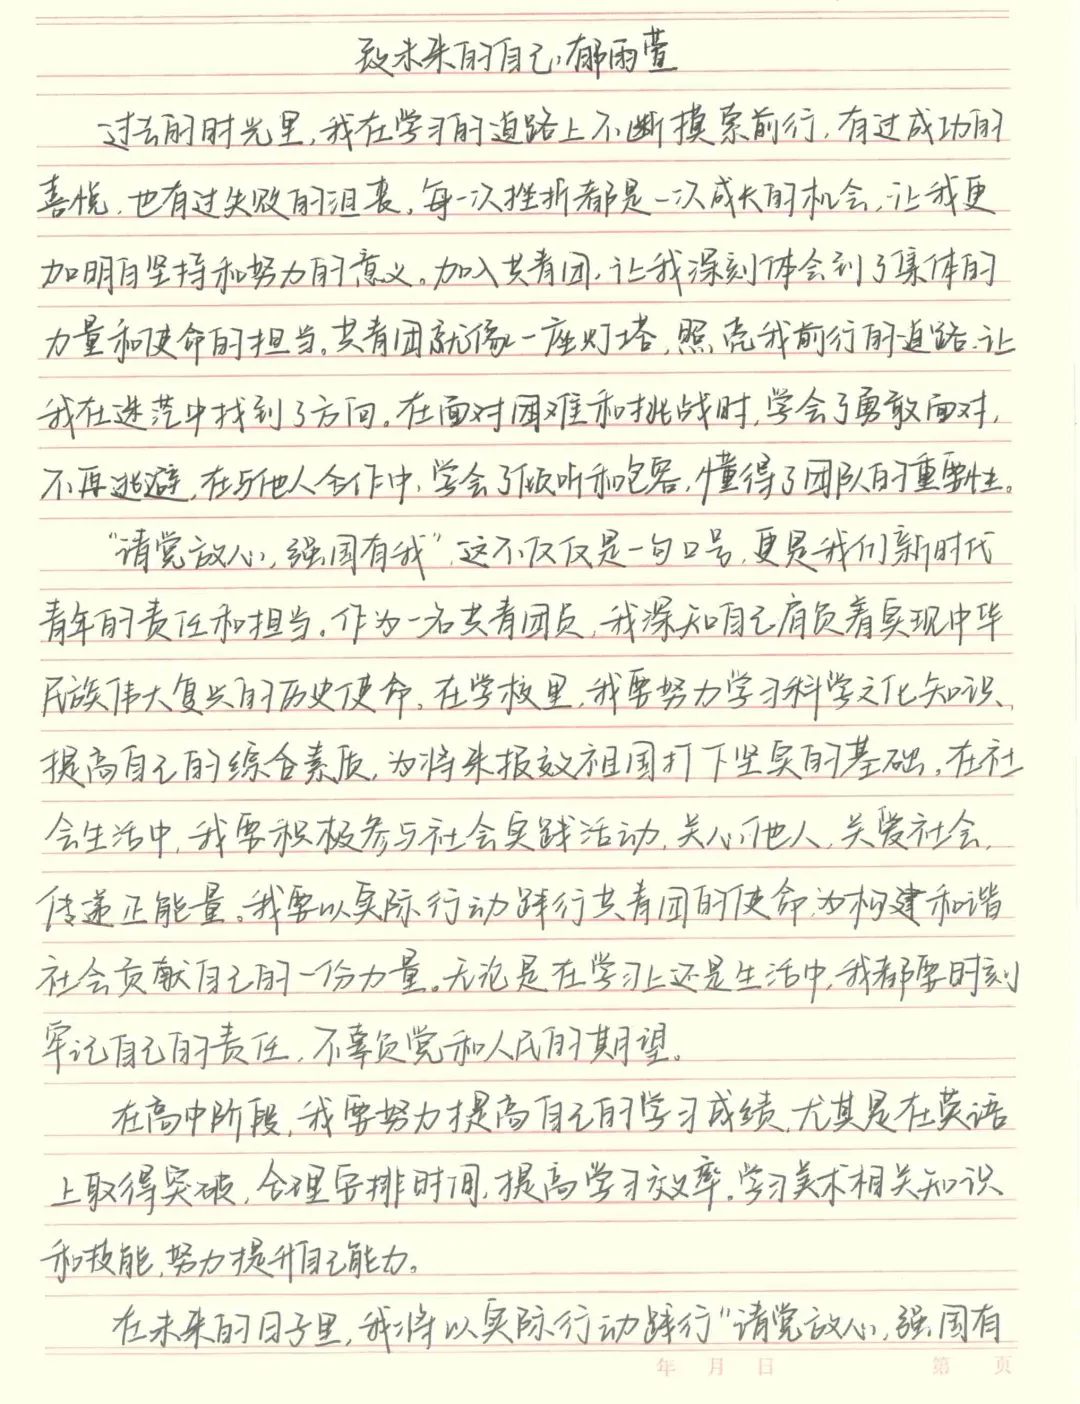 致未来的自己:郁雨萱
过去的时光里,我在学习的道路上不断摸索前行,有过成功的
喜悦,也有过失败的沮丧。每一次挫折都是一次成长的机会,让我更
加明白坚持和努力的意义。加入共青团,让我深刻体会到了集体的
力量和使命的担当。共青团就像一座灯塔,照亮我前行的道路,让
我在迷茫中找到了方向。在面对困难和挑战时,学会了勇敢面对,
不再逃避,在与他人合作中,学会了倾听和包容,懂得了团队的重要性。
“请党放心,强国有我”,这不仅仅是一句口号,更是我们新时代
青年的责任和担当。作为一名共青团员,我深知自己肩负着实现中华
民族伟大复兴的历史使命。在学校里,我要努力学习科学文化知识、
提高自己的综合素质,为将来报效祖国打下坚实的基础。在社
会生活中,我要积极参与社会实践活动,关心他人,关爱社会,
传递正能量。我要以实际行动践行共青团的使命,为构建和谐
社会贡献自己的一份力量。无论是在学习上还是生活中,我都要时刻
牢记自己的责任,不辜负党和人民的期望。
在高中阶段,我要努力提高自己的学习成绩,尤其是在英语
上取得突破,合理安排时间,提高学习效率。学习美术相关知识
和技能,努力提升自己能力。
在未来的日子里,我将以实际行动践行“请党放心,强国有
年 月 日 第 页